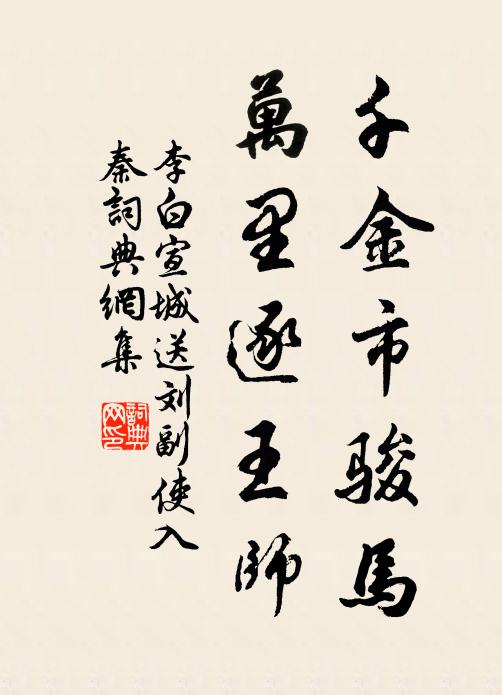 千金市骏馬
萬里逐王師
李白宣城送刘副使入
秦詞典網集
詞典网印